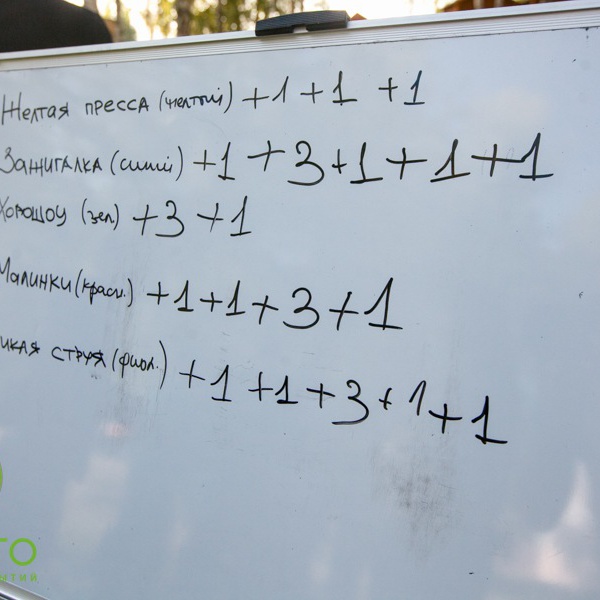 Желтая пресса (желтый) +1 +1 +1
Зажигалка (синий) +1 +3 +1 +1 +1
Хорошоу (зел.) +3 +1
Малинки (красн.) +1 +1 +3 +1
струя (фиол.) +1 +1 +3 +1 +1